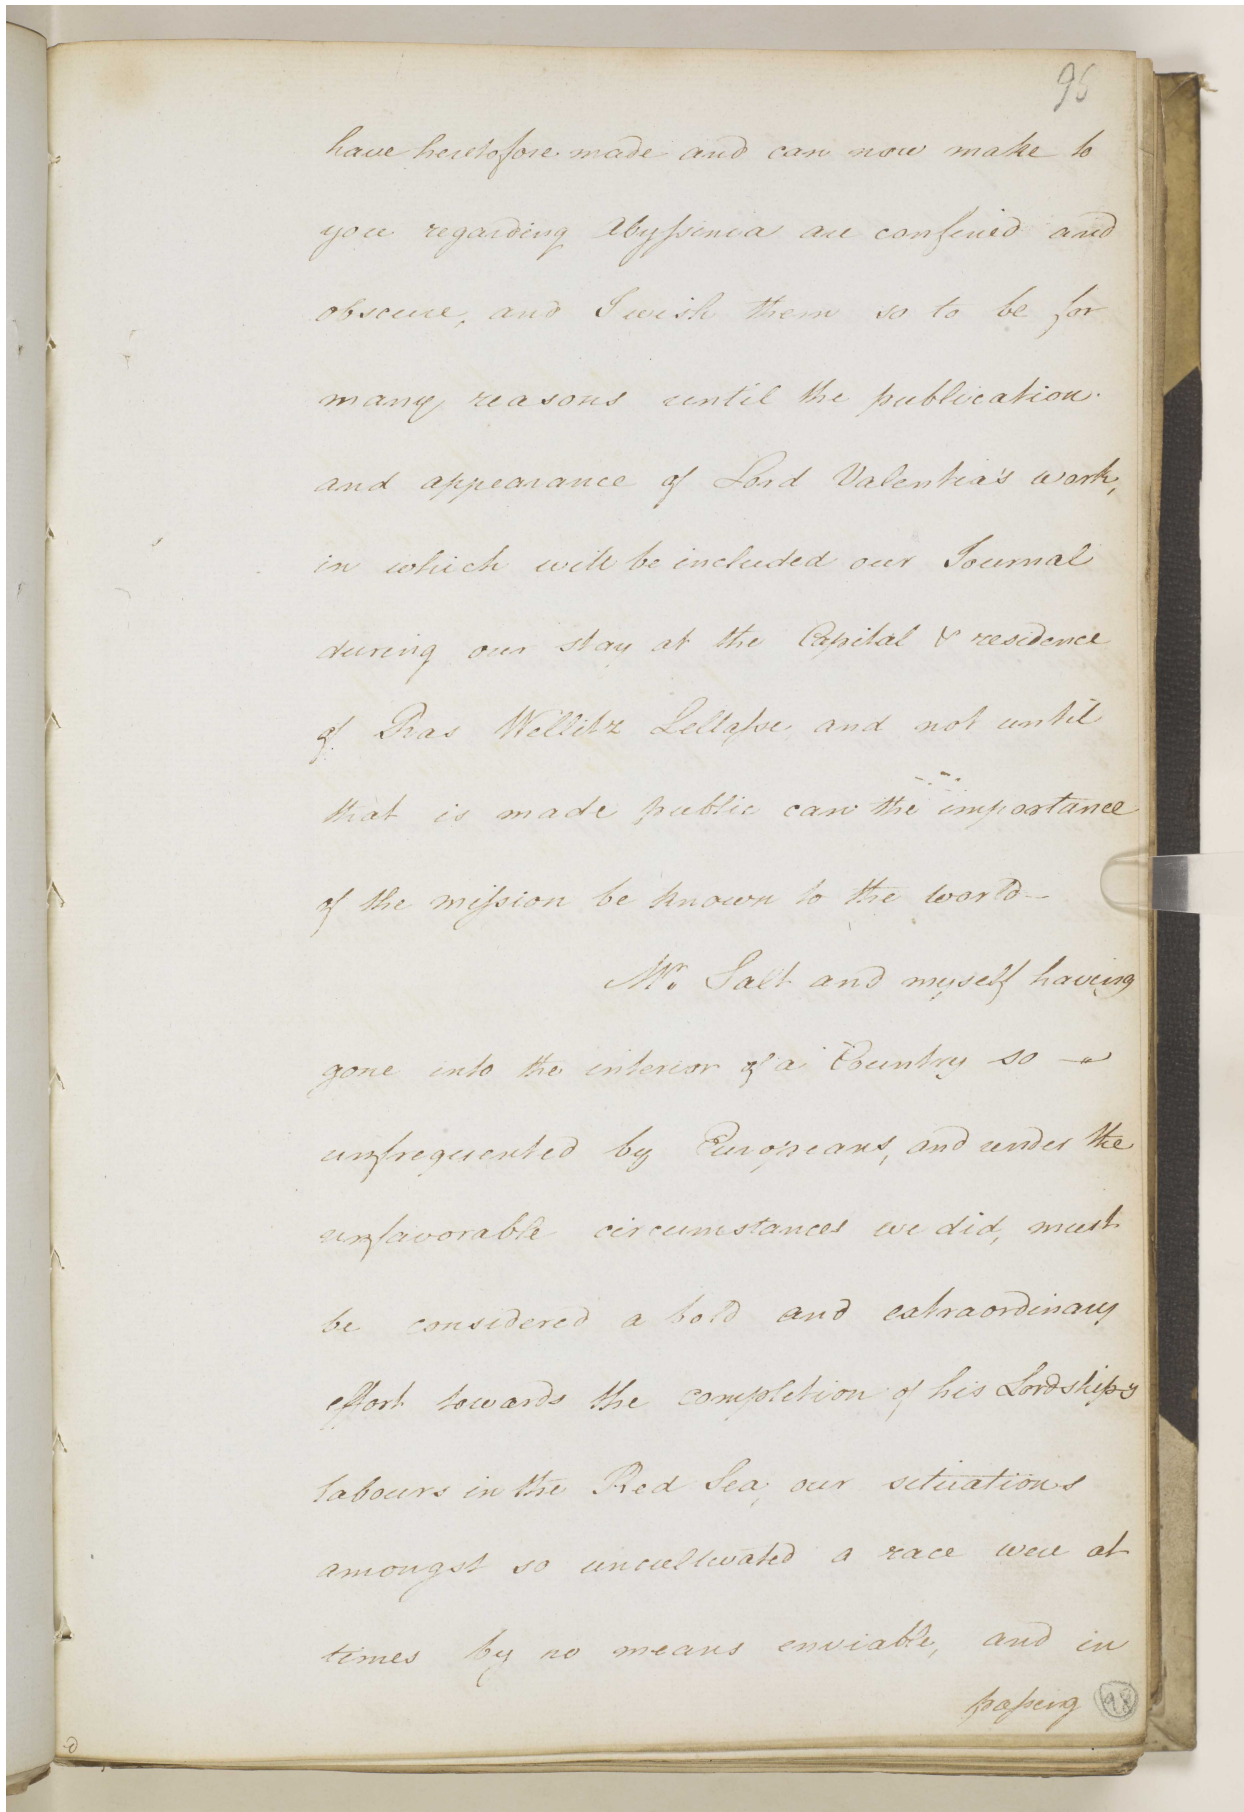 95
have heretofore made and can now make to
you regarding Abyssinia are confined and
obscure, and I wish them so to be for
many reasons until the publication
and appearance of Lord Valentia's work,
in which will be included our Journal
during our stay at the Capital & residence
of Ras Wellitz Sellasse, and not until
that is made public can the importance
of the mission be known to the world—
Mr. Salt and myself having
gone into the interior of a Country so —
unfrequented by Europeans, and under the
unfavorable circumstances we did, must
be considered a bold and extraordinary
effort towards the completion of his Lordship's
labours in the Red Sea, our situations
amongst so uncultivated a race were at
times by no means enviable, and in
passing
98